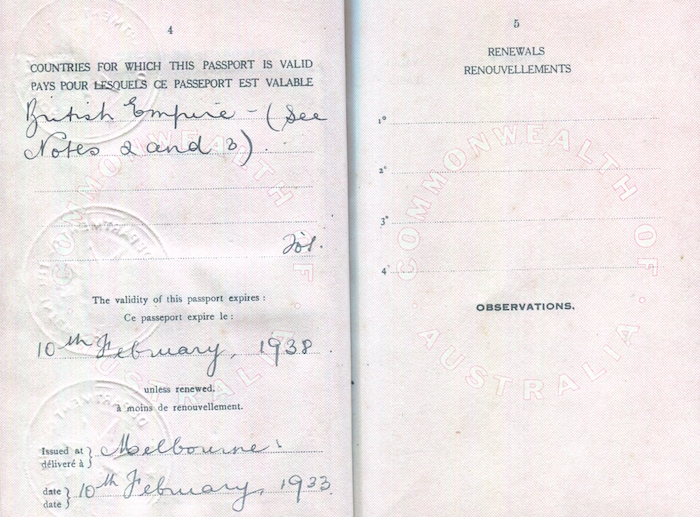 4
COUNTRIES FOR WHICH THIS PASSPORT IS VALID
PAYS POUR LESQUELS CE PASSEPORT EST VALABLE
British Empire - (See
Notes 2 and 3).
The validity of this passport expires :
Ce passeport expire le :
10th February, 1938.
unless renewed.
à moins de renouvellement.
Issued at } Melbourne
délivré à }
date } 10th February, 1933.
date }
5
RENEWALS
RENOUVELLEMENTS
1°
2°
3°
4°
OBSERVATIONS.
COMMONWEALTH OF AUSTRALIA